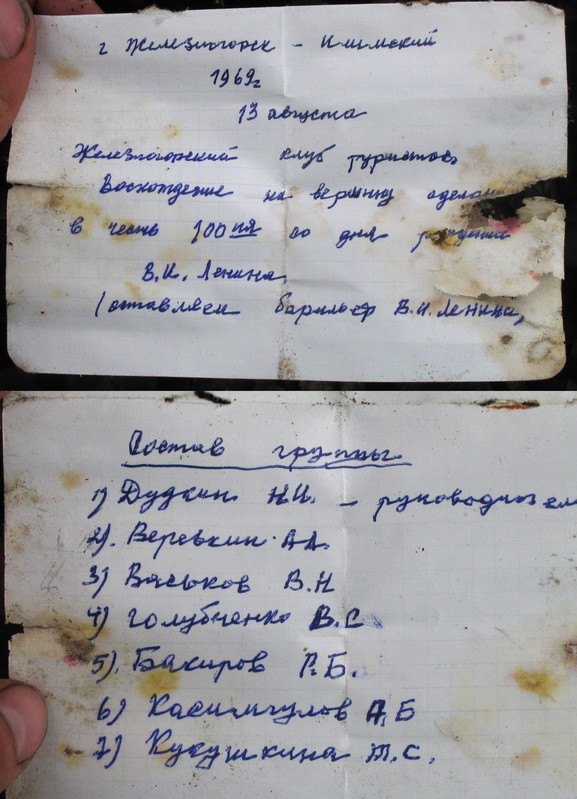 г Железногорск - Илимский
1969г
13 августа
Железногорский клуб туристов
Восхождение на вершину сделано
в честь 100ия со дня рождения
В.И. Ленина.
(оставляем барельеф В.И. Ленина,
Состав группы
1) Дудкин Н.И. - руководител
2). Веревкин А.А.
3) Васьков В.Н
4) Голубченко В.С
5). Бакиров Р.Б.
6) Касимгулов А.Б
7) Кукушкина Т.С.